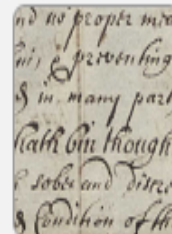 nd no proper mea
& preventing
& in many part
hath bin though
sober and discre
& Condition of th